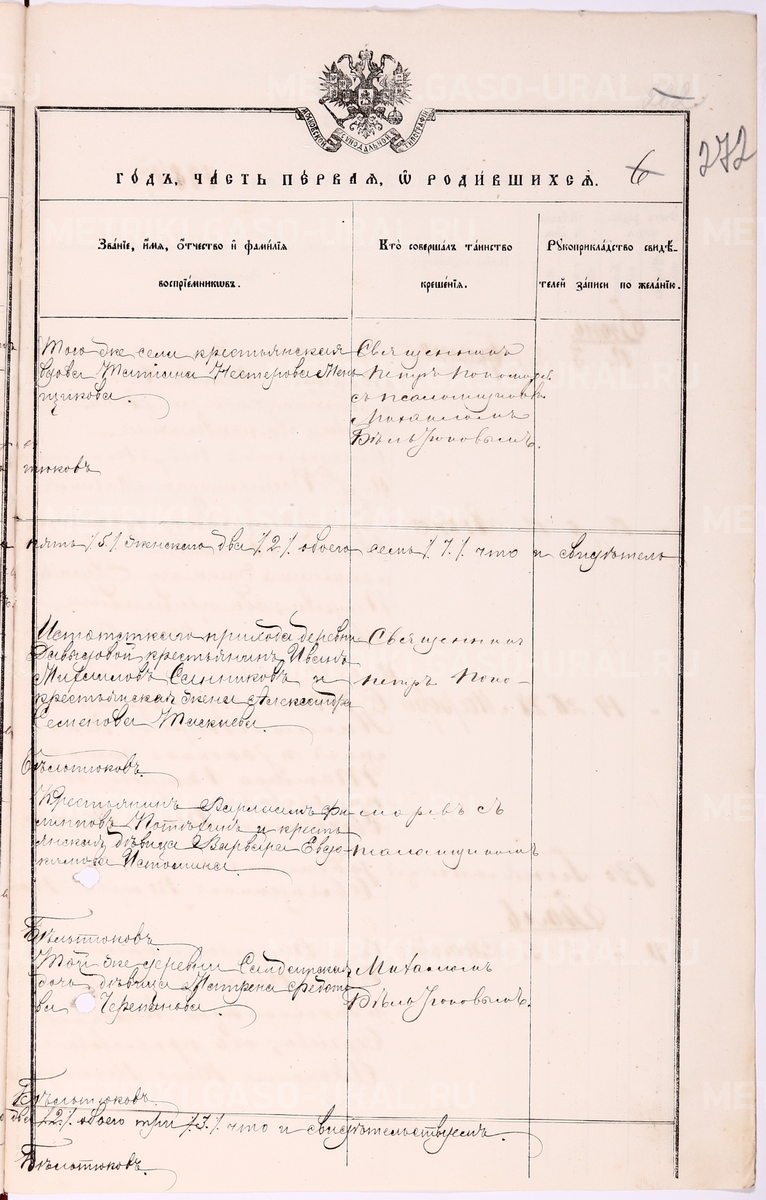 МОСКОВСКОЙ СѴНОДАЛЬНОЙ ТИПОГРАФІИ
272
6
ГО́ДЪ, ЧА́СТЬ ПЕ́РВАЯ, Ѽ РОДИ́ВШИХСЯ.
Зва́нїе, и́мя, о́тчество и҆ фами́лїя
воспрїе́мникѡвъ.
Кто̀ соверша́лъ та́инство
креще́нїя.
Рꙋкоприкла́дство свидѣ́-
телей за́писи по жела́нїю.
Того же села крестьянская
вдова Татiана Нестерова Мен
щикова.
Священникъ
Петръ Пономар.
съ псаломщиком
Михаиломъ
Бѣльтюковымъ.
тюковъ
пять /5/ женскаго два /2/ обоего семь /7/ что и свидѣтель
Истоткаго прихода деревни
Давыдовой крестьянинъ Иванъ
Михаиловъ Санниковъ и
крестьянская жена Александра
Семенова Таскаева.
Священникъ
Петръ Поно-
Бѣльтюковъ.
Крестьянинъ Варлаамъ Фи
липповъ и кресть
янская дѣвица Варвара Евдо
кимова Истомина.
маревъ съ
псаломщикомъ
Бѣльтюковъ.
Той же деревни Солдатская
дочь дѣвица Матрена Федото
ва Черепанова.
Михаиломъ
Бѣльтюковымъ.
Бѣльтюковъ.
два /2/ обоего три /3/ что и свидѣтельствуемъ.
Бѣльтюковъ.